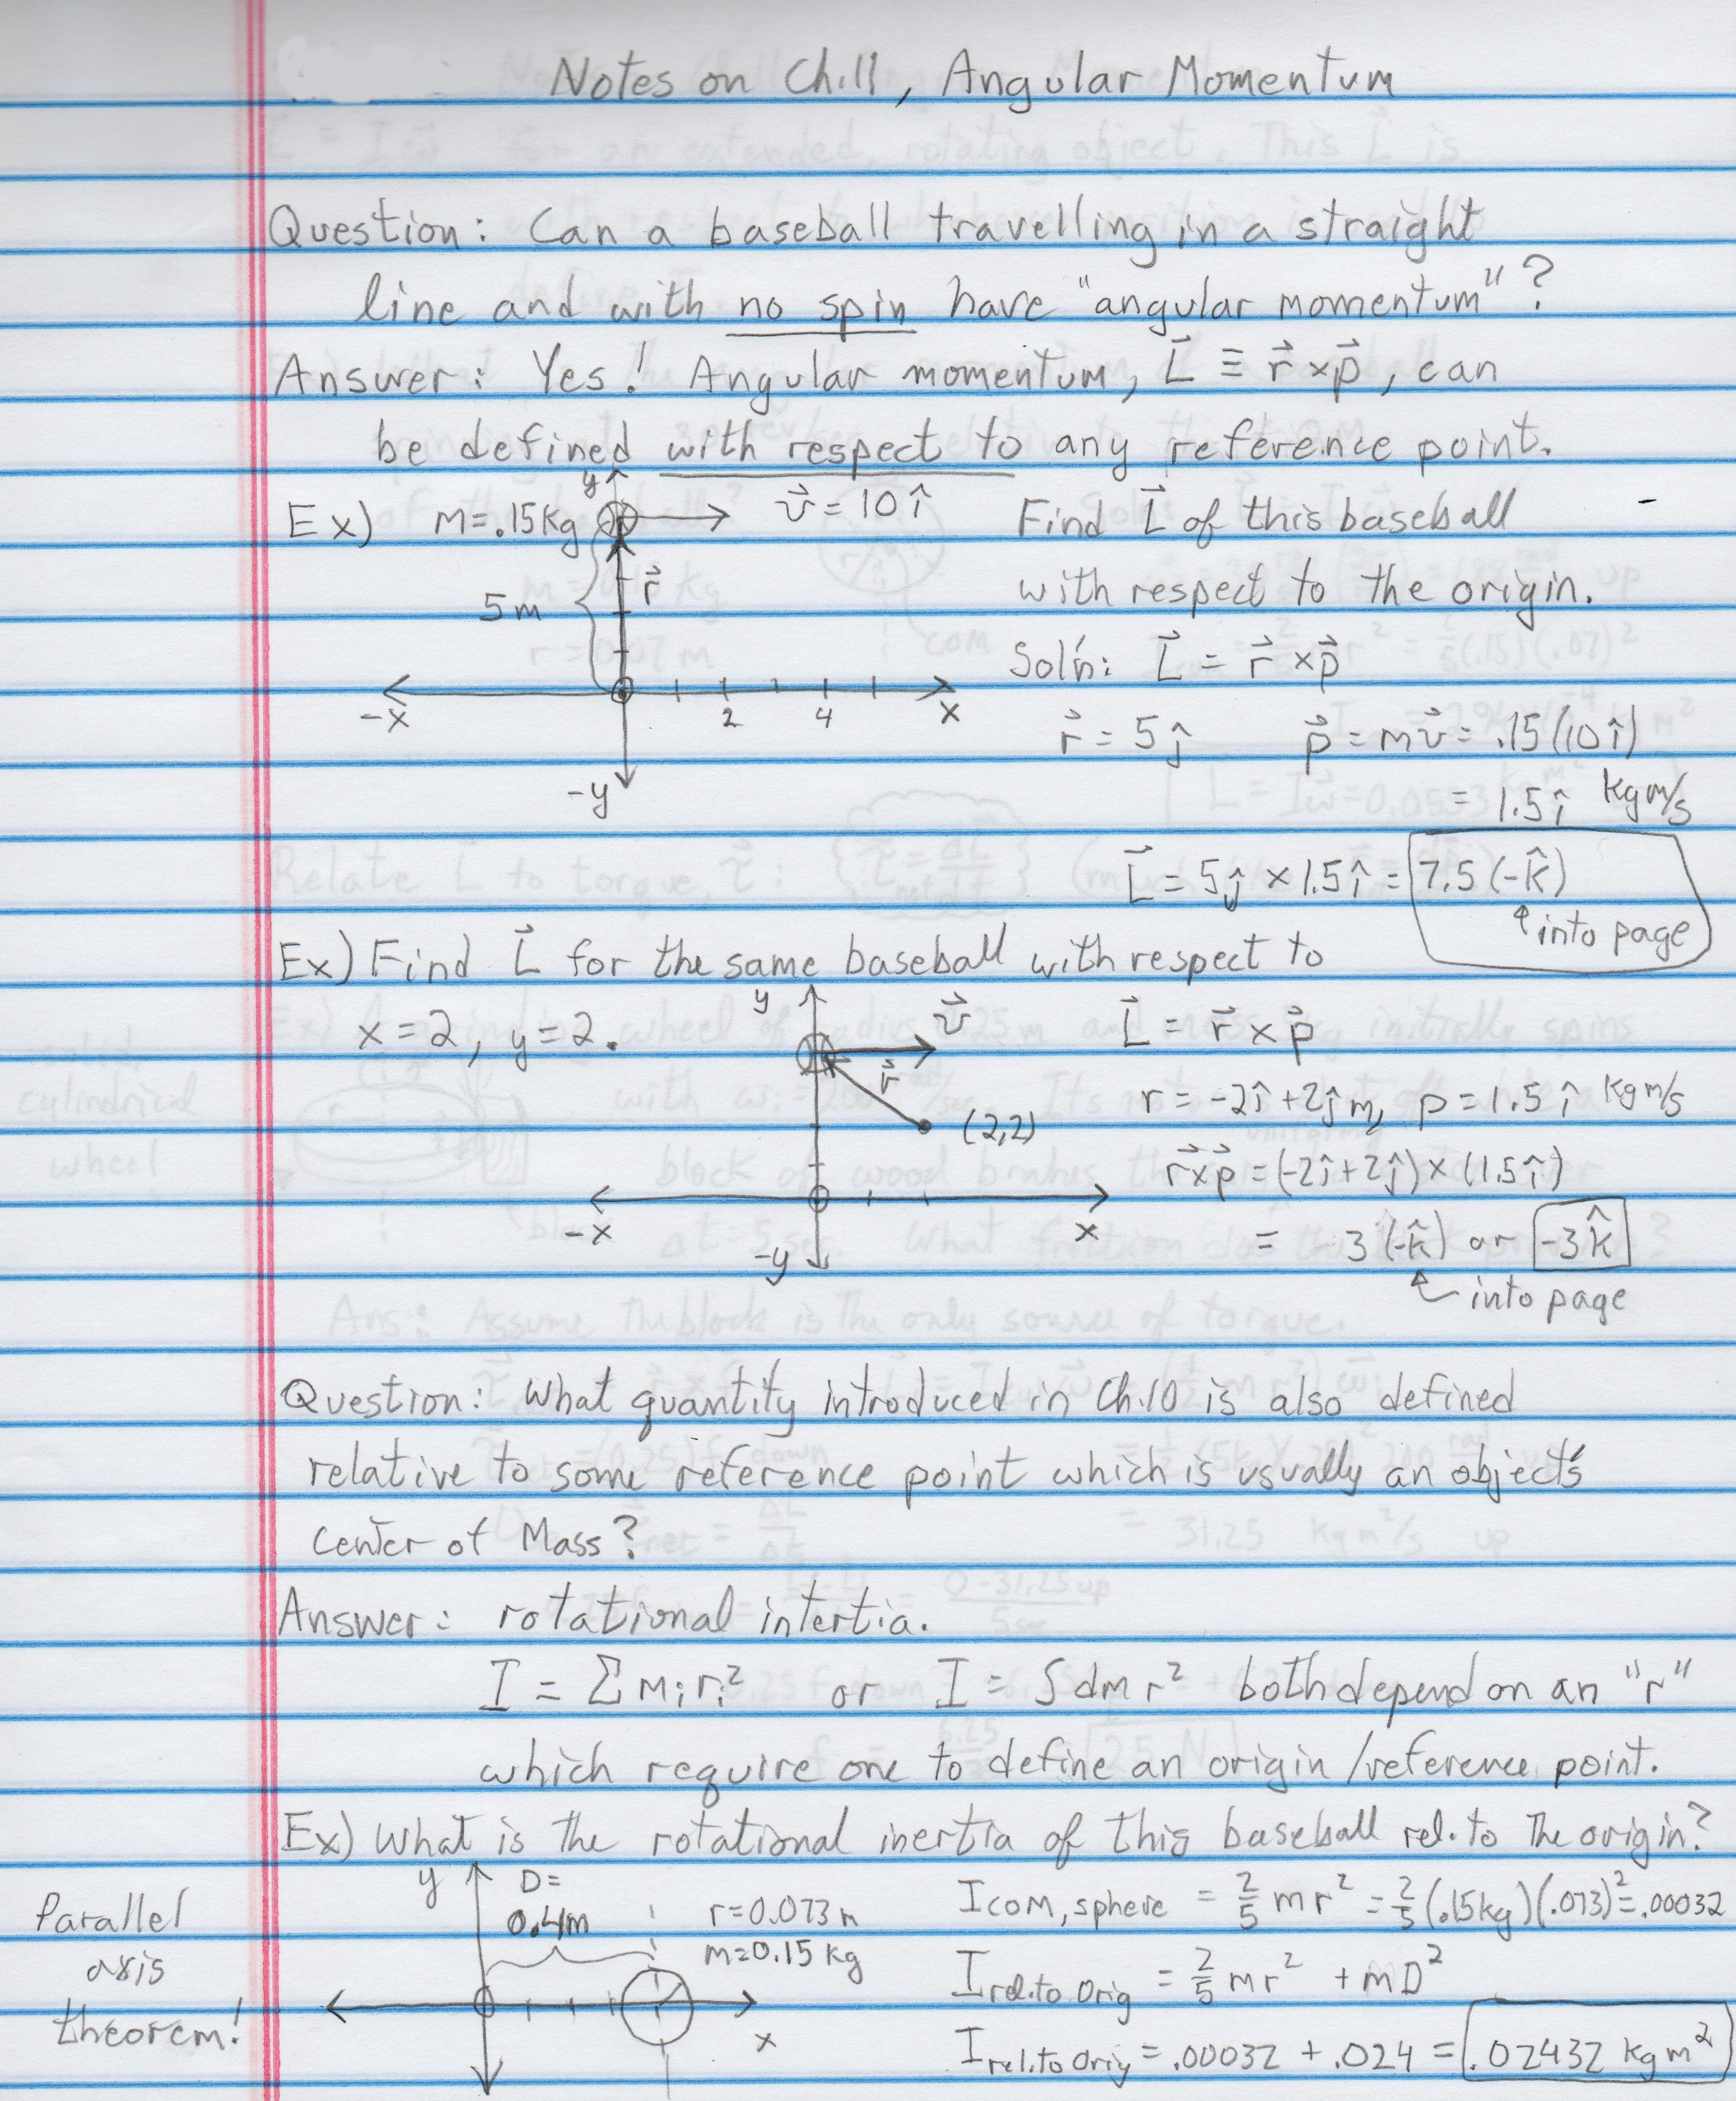 Notes on Ch.11, Angular Momentum
Question: Can a baseball travelling in a straight
line and with no spin have "angular momentum"?
Answer: Yes! Angular momentum, L⃗ ≡ r⃗ × p⃗, can
be defined with respect to any reference point.
Ex) m=.15kg
y
v⃗ = 10 î
r⃗
5m
-x
2
4
x
-y
Find L⃗ of this baseball
with respect to the origin.
Sol'n: L⃗ = r⃗ × p⃗
r⃗ = 5ĵ p⃗ = mv⃗ = .15(10î)
= 1.5î kg m/s
L⃗ = 5ĵ × 1.5î = 7.5(-k̂)
↑ into page
Ex) Find L⃗ for the same baseball with respect to
x=2, y=2.
y
v⃗
r⃗
(2,2)
-x
x
-y
L⃗ = r⃗ × p⃗
r = -2î + 2ĵ m, p = 1.5 î kg m/s
r⃗ × p⃗ = (-2î + 2ĵ) × (1.5î)
= 3(-k̂) or -3k̂
into page
Question: What quantity introduced in Ch.10 is also defined
relative to some reference point which is usually an object's
center of Mass?
Answer: rotational intertia.
I = Σ mᵢrᵢ² or I = ∫dm r² both depend on an "r"
which require one to define an origin/reference point.
Ex) What is the rotational inertia of this baseball rel. to the origin?
Parallel
axis
theorem!
y
D=
0.4m
r=0.073m
m=0.15 kg
x
I COM, sphere = 2/5 mr² = 2/5 (.15kg)(.073)² = .00032
I rel. to Orig = 2/5 mr² + mD²
I rel. to Orig = .00032 + .024 = .02432 kg m²